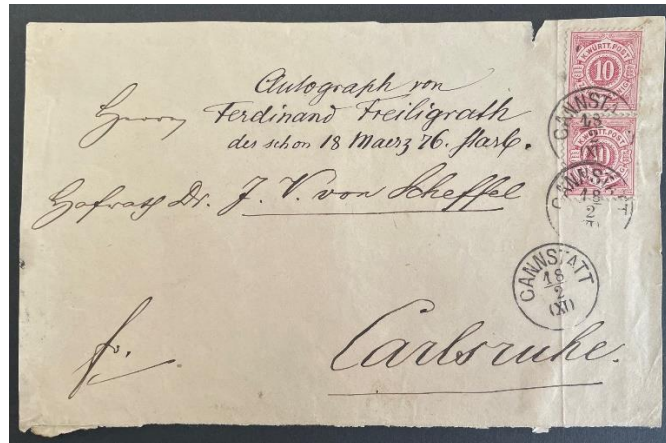 Autograph von
Herrn Ferdinand Freiligrath
der schon 18 Maerz 76. starb.
Hofrath Dr. J. V. von Scheffel
fr. Carlsruhe.
K. WÜRTT. POST
10
CANNSTATT
18
(XI)
K. WÜRTT. POST
10
CANNSTATT
18
2
CANNSTATT
18
2
(XI)